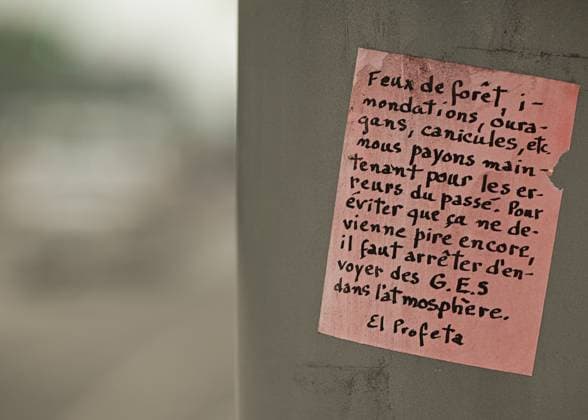 Feux de forêt, i-
nondations, oura-
gans, canicules, etc.
nous payons main-
tenant pour les er-
reurs du passé. Pour
éviter que ça ne de-
vienne pire encore,
il faut arrêter d'en-
voyer des G.E.S
dans l'atmosphère.
El Profeta